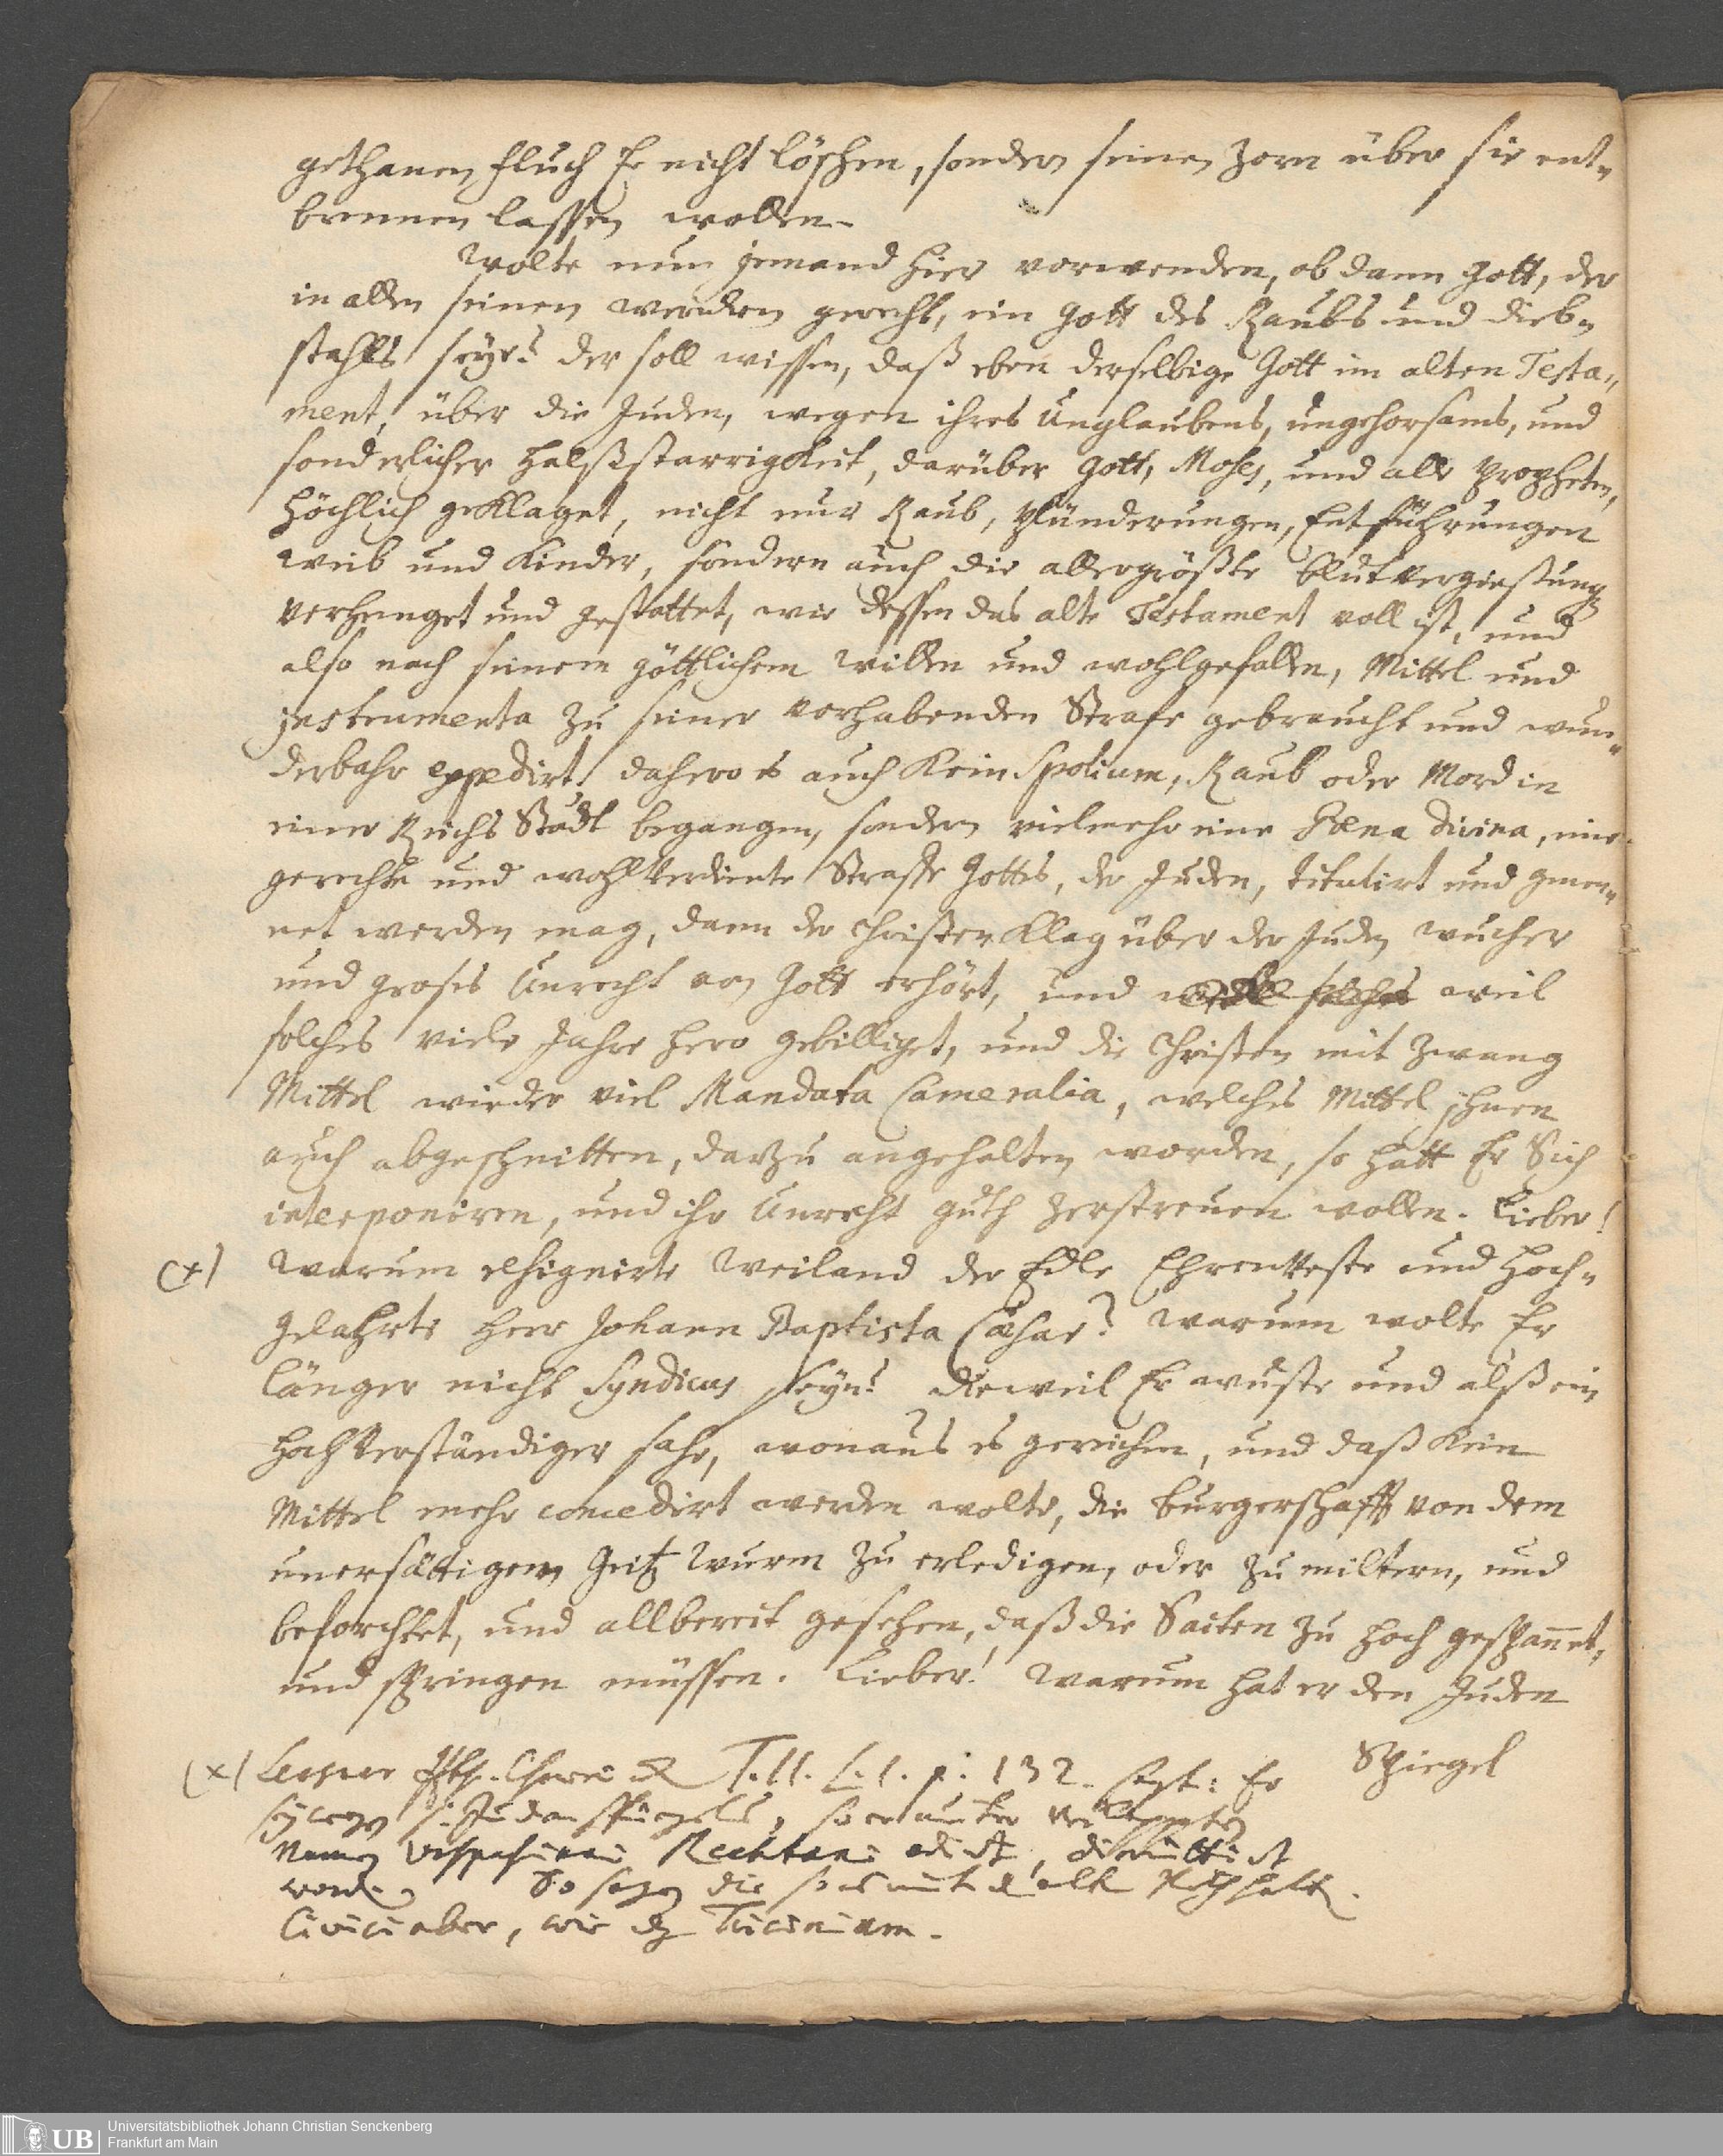 gethanen Fluch Er nicht löschen, sondern seinen Zorn über sie ent-
brennen lassen wollen.
Wolte nun jemand hier vorwenden, ob dann Gott, der
in allen seinen wercken gerecht, ein Gott des Raubs und Dieb-
stahls seye? der soll wissen, daß eben derselbige Gott im alten Testa-
ment, über die Juden, wegen ihres Unglaubens, ungehorsams, und
sonderlicher Halßstarrigkeit, darüber Gott, Moses, und alle Propheten,
höchlich geklaget, nicht nur Raub, Plünderungen, Entführungen
weib und Kinder, sondern auch die allergröste blutvergiesung
verhenget und gestattet, wie dessen das alte Testament voll ist, und
also nach seinem göttlichem willen und wohlgefallen, Mittel und
jnstrumenta zu seiner vorhabenden Strafe gebraucht und wun-
derbahr expedirt, dahero es auch Kein Spolium, Raub oder Mord in
einer Reichs Stadt begangen, sondern vielmehr eine Pœna divina, eine
gerechte und wohlverdiente Straffe Gottes, der Juden, titulirt und genen-
net werden mag, dann der Christen Klag über der Juden wucher
und groses Unrecht von Gott erhört, und weil
solches viele Jahre hero gebilliget, und die Christen mit Zwang
Mittel wieder viel Mandata Cameralia, welches Mittel jhnen
auch abgeschnitten, darzu angehalten worden, so hatt Er Sich
interponiren, und ihr Unrecht guth zerstreuen wollen. Lieber!
(+) Warum resignirte Weiland der Edle Ehrenveste und Hoch-
gelahrte Herr Johann Baptista Cæsar? warum wolte Er
länger nicht Syndicus seyn? dieweil Er wuste und alß ein
hochverständiger sahe, wonaus es gereichen, und daß Kein
Mittel mehr concedirt werden wolte, die burgerschafft von dem
unersättigen Geitz Wurm zu erledigen, oder zu miltern, und
beforchtet, und allbereit gesehen, daß die Saiten zu hoch gespannet,
und springen müssen. Lieber! Warum hat er den Juden
Spiegel
(x) Lersner T. II. L. 1. p. 132. sagt: Er
sey wegen Judenspiegels, so er unter
Namen Vespasiani Rechtani edirt, dimittirt
worden. So sagen die so es mit alten Rath halten.
Civici aber, wie